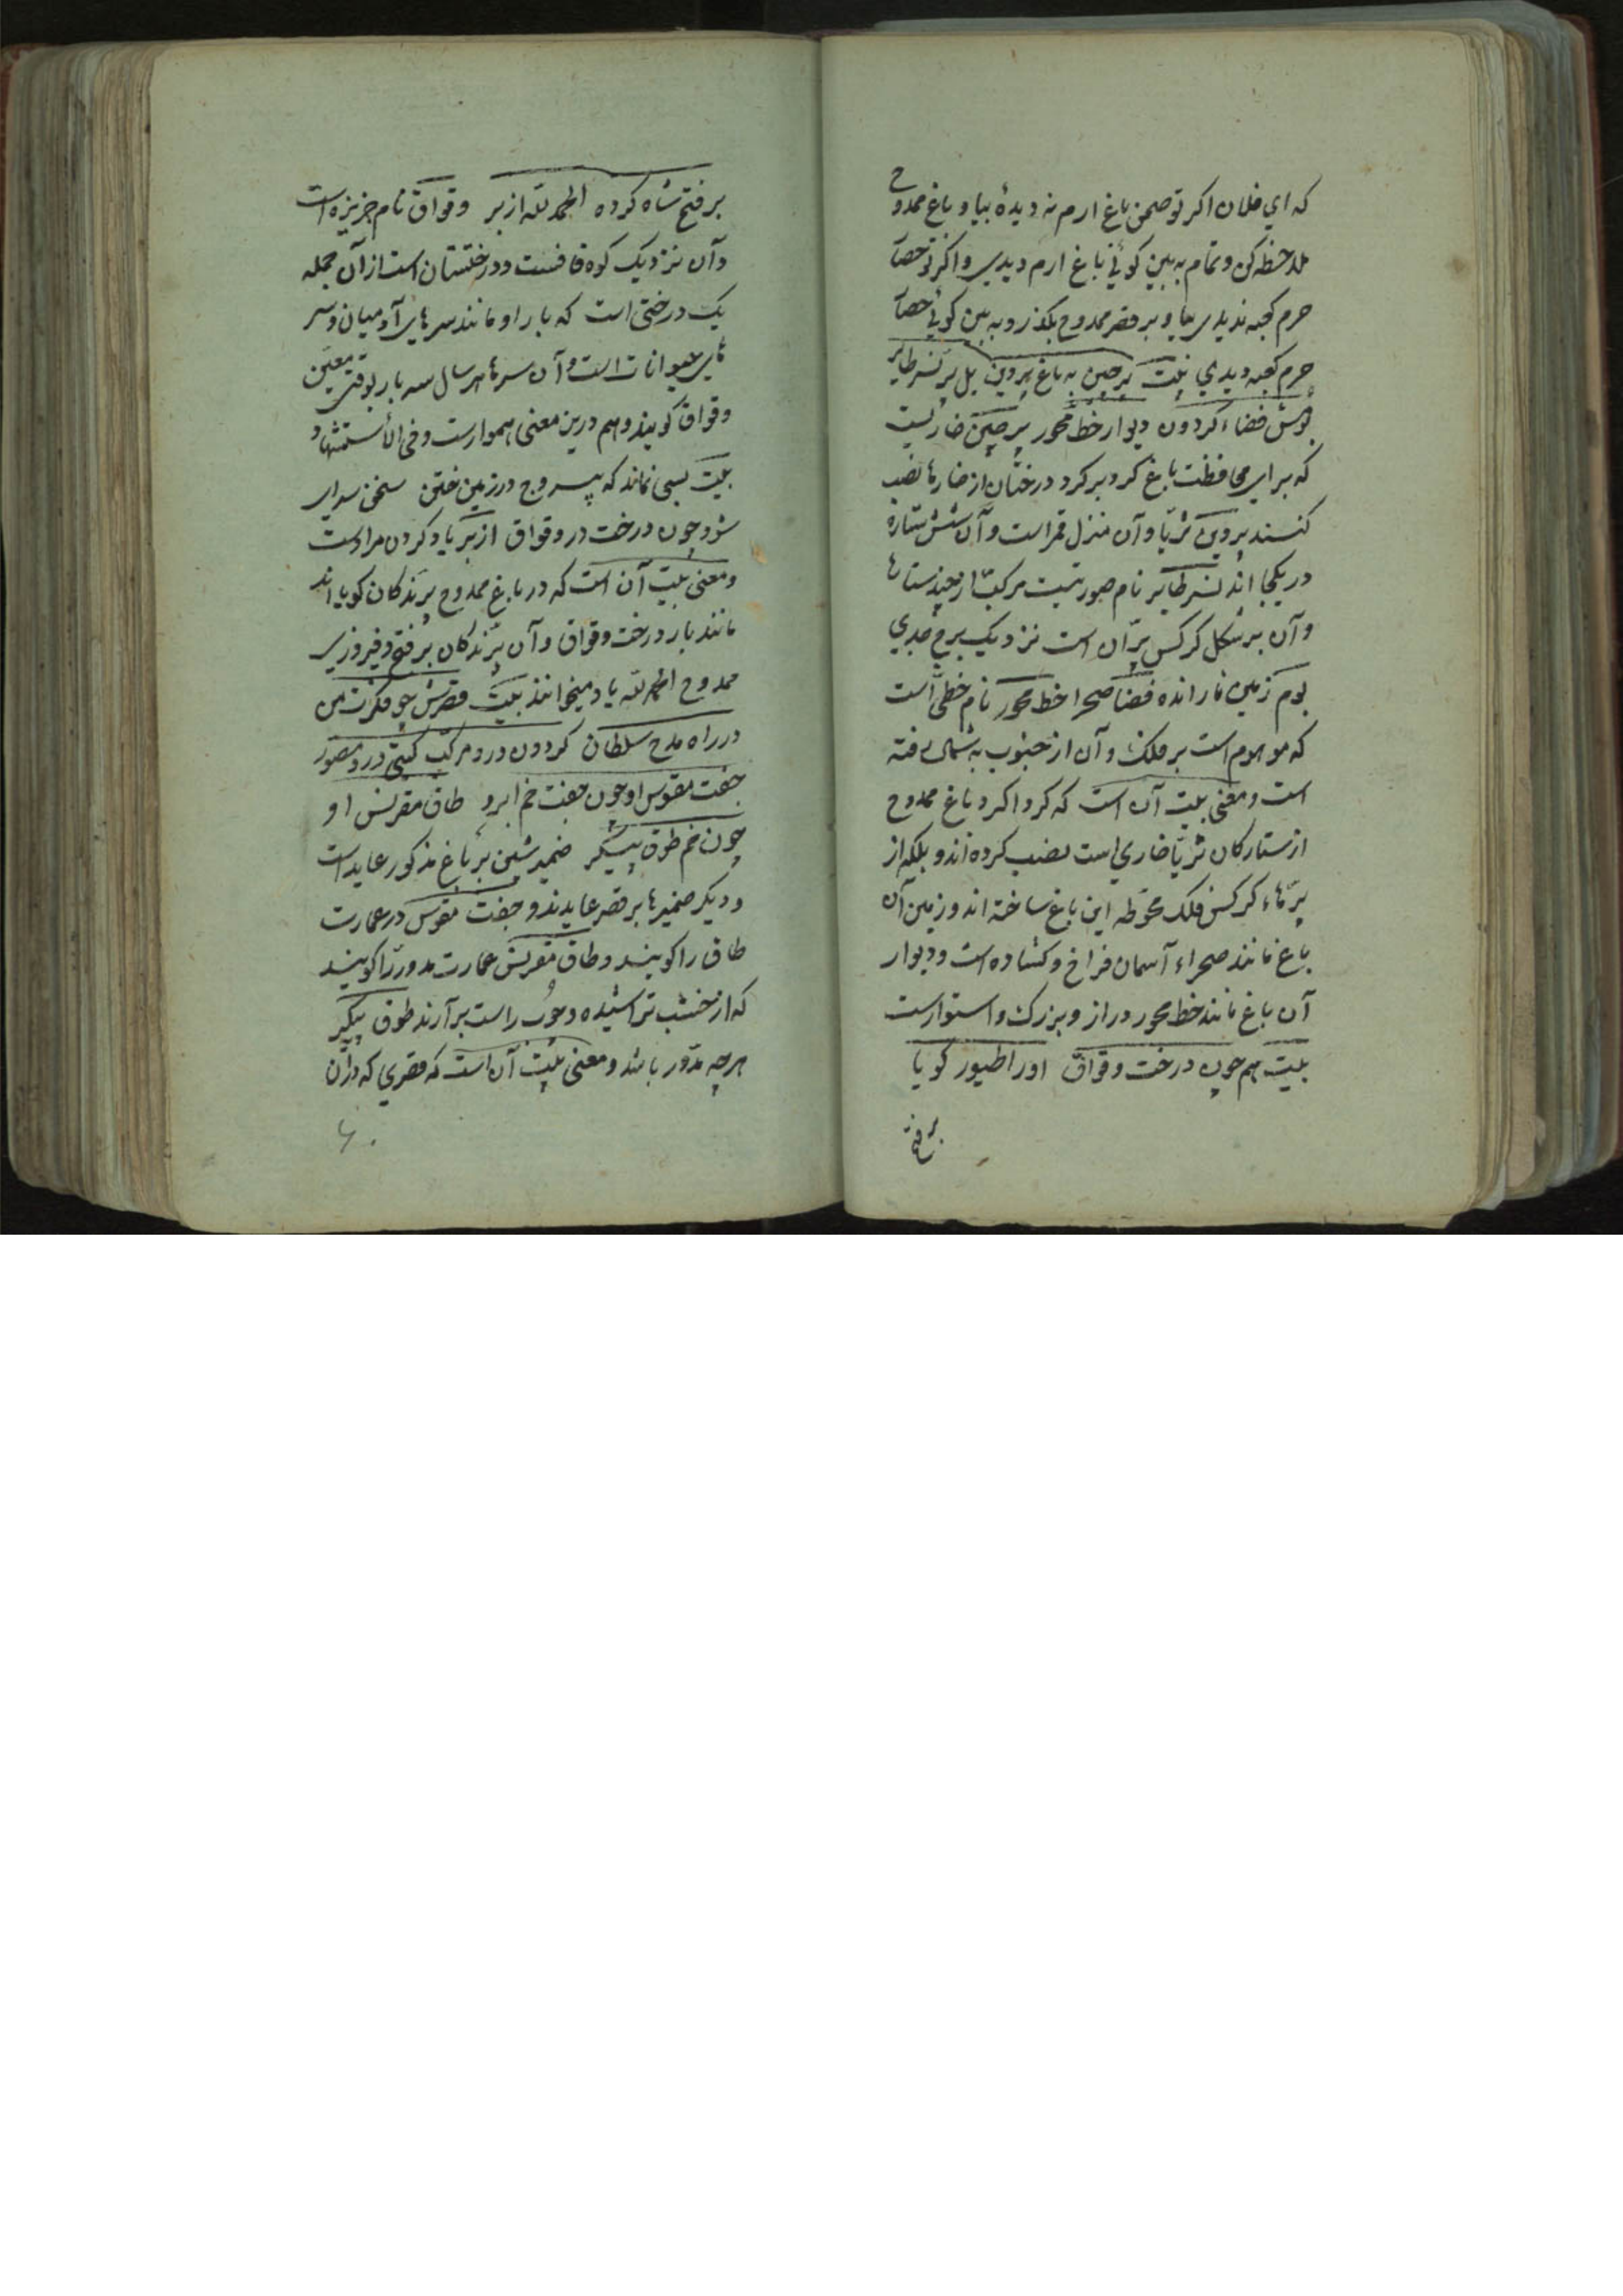 که ای فلان اکر تو صحن باغ ارم نه دیدهٔ بیا و باغ ممدوح
ملاحظه کن و تمام به بین کوئی باغ ارم دیدی و اکر تو حصار
حرم کعبه ندیدی بیا و بر قصر ممدوح بکذر و به بین کوئی حصار
حرم کعبه دیدی بیت پرچین به باغ پروین بل پر نسر طایر
بومش فضاء کردون دیوار خط محور پرچین خاریست
که برای محافظت باغ کرد بر کرد درختان از خارها نصب
کنند پروین ثریا و آن منزل قمر است و آن شش ستاره
در یکجا اند نسر طایر نام صورتیست مرکب از چند ستارها
و آن بر شکل کرکس پرّان است نزدیک برج جدی
بوم زمین نارانده فضا صحرا خط محور نام خطی است
که موهوم است بر فلک و آن از جنوب به شمال رفته
است و معنی بیت آن است که کرداکرد باغ ممدوح
از ستارکان ثریا خاری است نصب کرده اند و بلکه از
پرّهاء کرکس فلک محوطه این باغ ساخته اند و زمین آن
باغ مانند صحراء آسمان فراخ و کشاده است و دیوار
آن باغ مانند خط محور دراز و بزرک و استوار است
بیت همچون درخت وقواق او را طیور کویا
بر فتح
بر فتح شاه کرده الحمد لله از بر وقواق نام جزیزه است
و آن نزدیک کوه قافست و درختستان است از آن جمله
یک درختی است که بار او مانند سرهای آدمیان و سر
های حیوانات است و آن سرها هر سال سه بار بوقت معین
وقواق کویند و هم درین معنی هموارست و فی الأستشهاد
بیت بسی نماند که بیروح در زمین ختن سخن سرای
شود چون درخت در وقواق از بر یاد کردن مرادست
و معنی بیت آن است که در باغ ممدوح پرندکان کویا اند
مانند بار درخت وقواق و آن پرندکان بر فتح و فیروزی
ممدوح الحمد لله یاد میخوانند بیت قصرش چو فکرت من
در راه مدح سلطان کردون درو مرکب کیتی درو مصور
جفت مقوس او چون جفت خم ابرو طاق مقرنس او
چون خم طوق پیکر ضمیر شین بر باغ مذکور عاید است
و دیکر ضمیرها بر قصر عایدند و جفت مقوس در عمارت
طاق را کویند و طاق مقرنس عمارت مدور را کویند
که از خشب تراشیده و چوب راست برآرند طوق پیکر
هرچه مدوّر باشد و معنی بیت آن است که قصری که در آن
۶۰